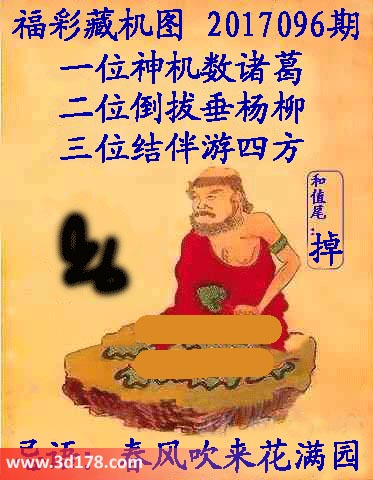 福彩藏机图 2017096期
一位神机数诸葛
二位倒拔垂杨柳
三位结伴游四方
和值尾：掉
忌语：春风吹来花满园
www.3d178.com